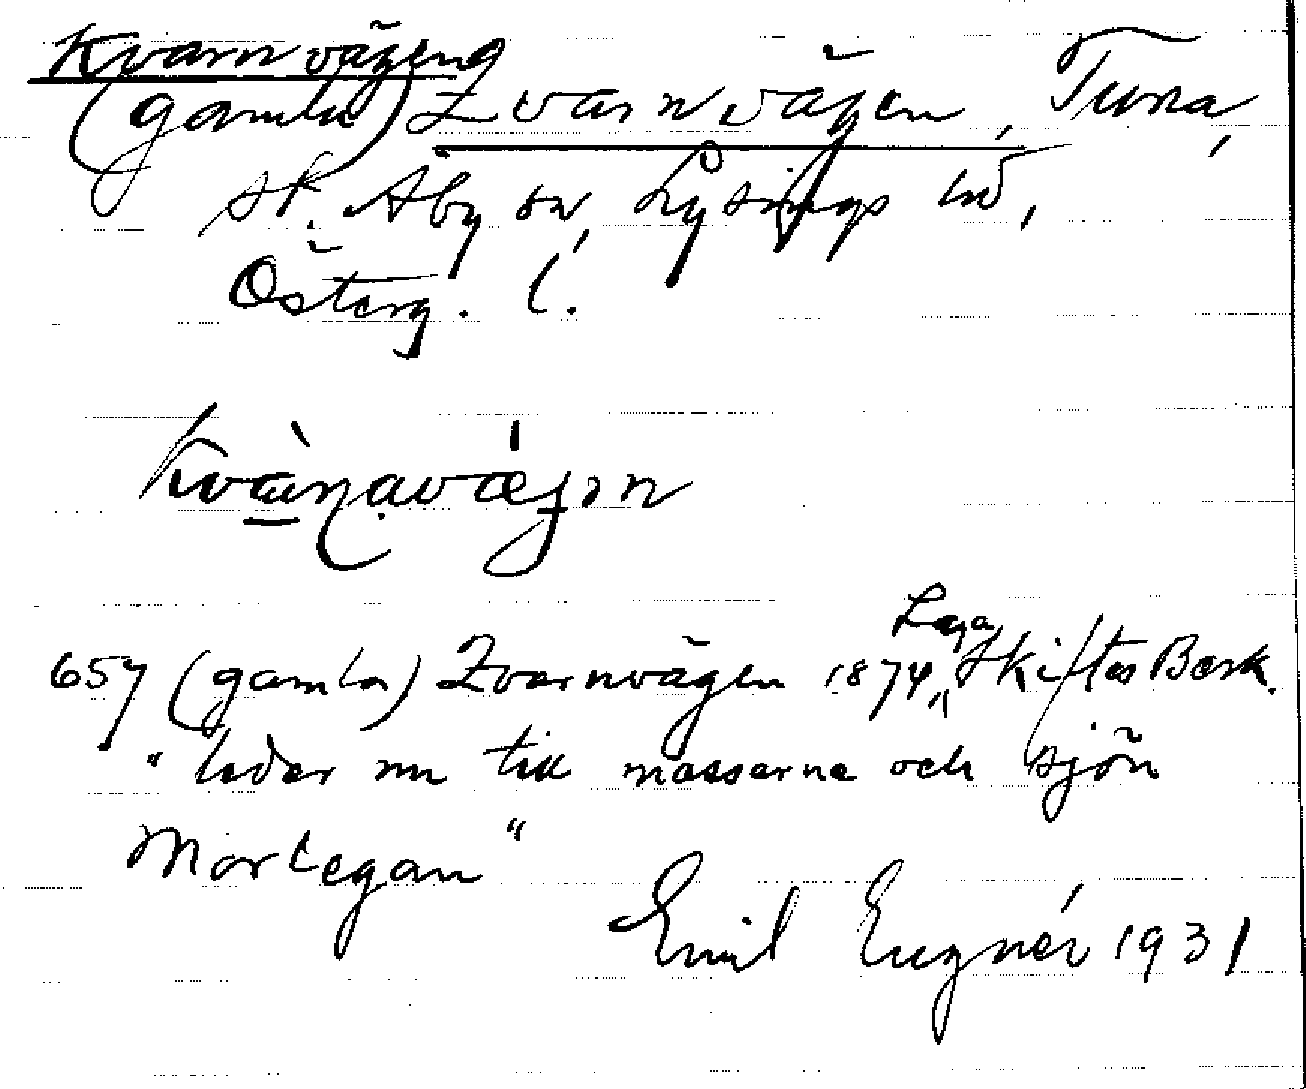 Kvarnvägen
(gamla) Qvarnvägen, Tuna,
St. Åby sn, Lysings hd,
Österg. l.
kvànavǽjən
657 (gamla) Qvarnvägen 1874 Laga Skiftes Besk.
"leder nu till mossarne och sjön
Mortegan"
Emil Eugnér 1931